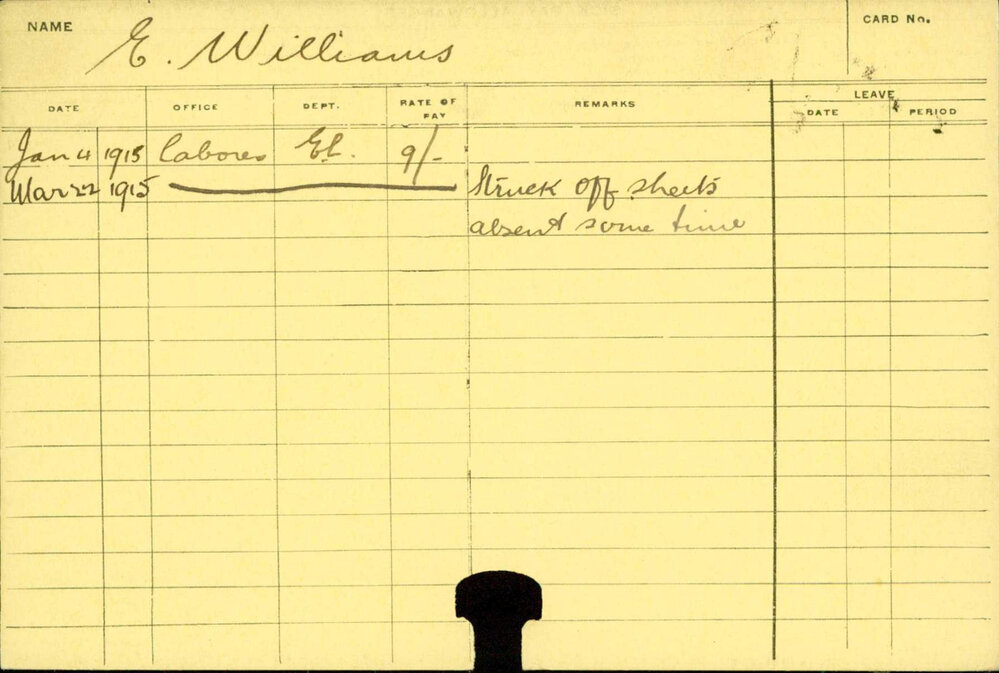 NAME E. Williams CARD No.
DATE OFFICE DEPT. RATE OF PAY REMARKS LEAVE DATE PERIOD
Jan 4 1915 Laborer El. 9/-
Mar 22 1915 Struck off sheets
absent some time